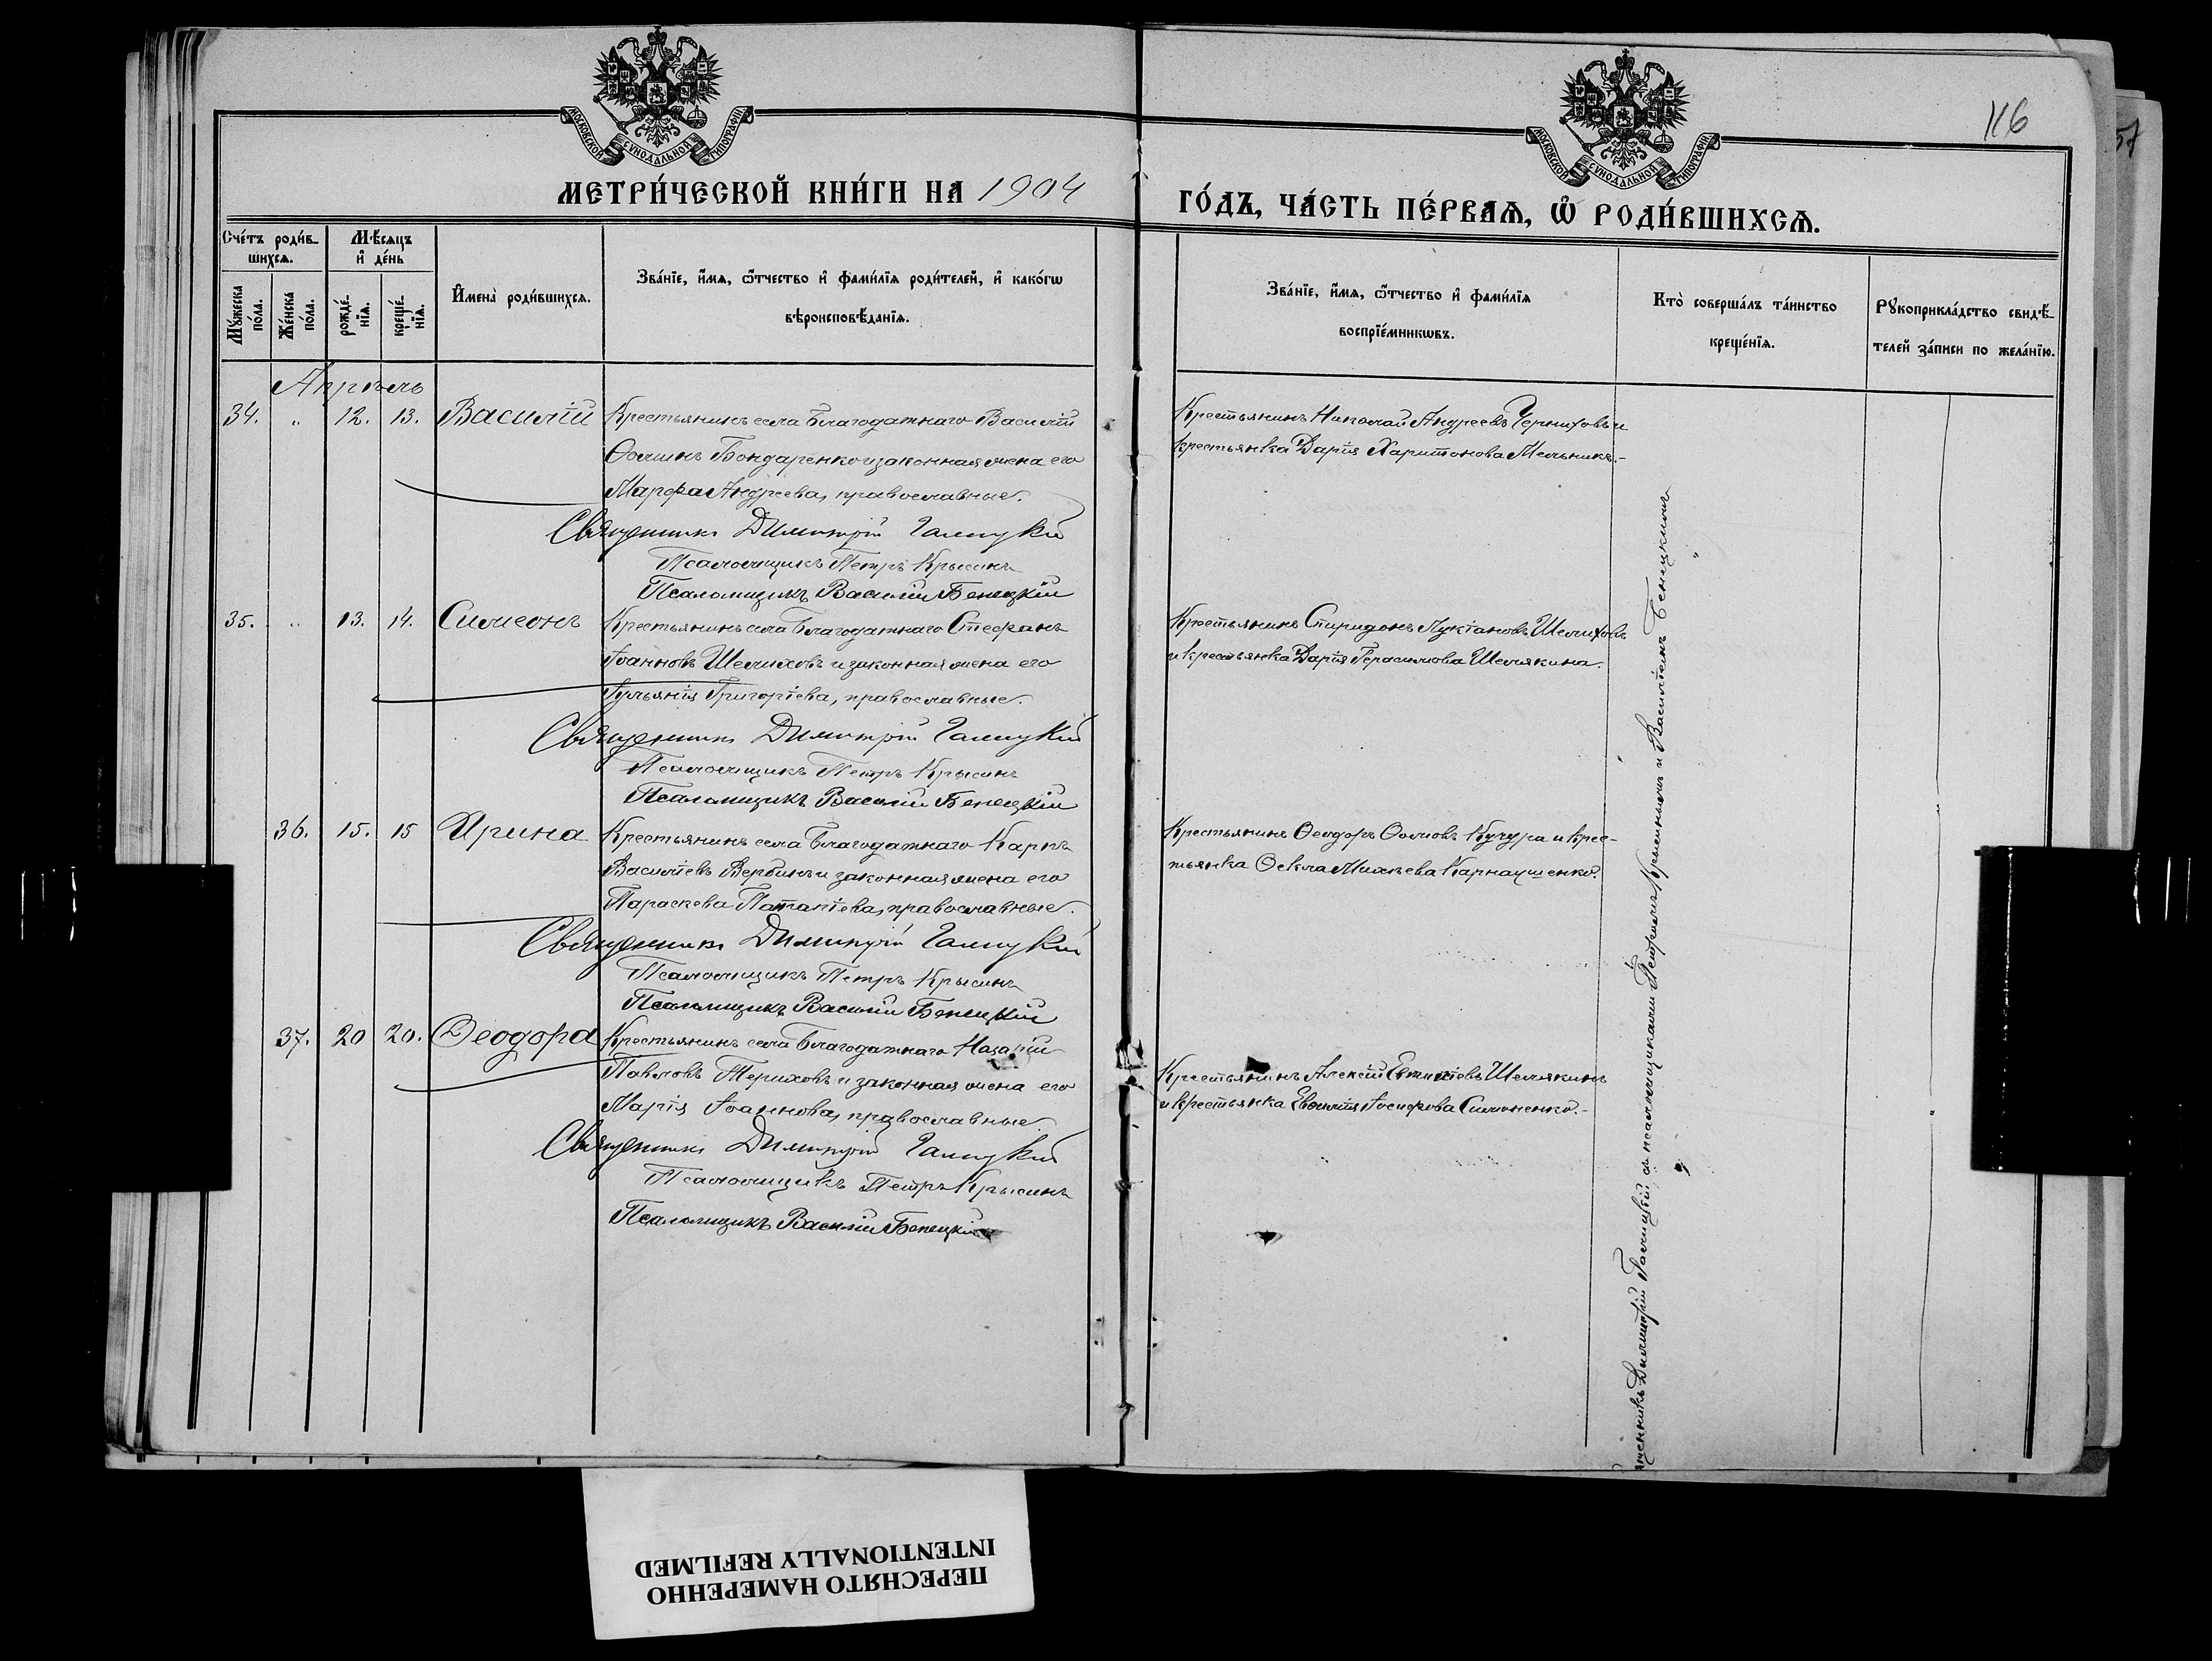 МОСКОВСКОЙ СѴНОДАЛЬНОЙ ТИПОГРАФІИ
МОСКОВСКОЙ СѴНОДАЛЬНОЙ ТИПОГРАФІИ
116
57
МЕТРИ́ЧЕСКОЙ КНИ́ГИ НА 1904
ГО́ДЪ, ЧА́СТЬ ПЕ́РВАѦ, Ѽ РОДИ́ВШИХСѦ.
Сче́тъ роди́в-
шихсѧ.
Мѣ́сѧцъ
и҆ де́нь
Мꙋ́жеска
по́ла.
Же́нска
по́ла.
рожде́-
нїѧ.
креще́-
нїѧ.
И҆мена̀ роди́вшихсѧ.
Зва́нїе, и҆́мѧ, ѻ҆́тчество и҆ фами́лїѧ роди́телей, и҆ како́гѡ
вѣроисповѣ́данїѧ.
Зва́нїе, и҆́мѧ, ѻ҆́тчество и҆ фами́лїѧ
воспрїе́мникѡвъ.
Кто̀ соверша́лъ та́инство
креще́нїѧ.
Рꙋкоприкла́дство свидѣ́-
телей за́писи по жела́нїю.
Апрѣль
34. „ 12. 13. Василій
Крестьянинъ села Благодатнаго Василій
Ѳоминъ Бондаренко и законная жена его
Марѳа Андреева, православные.
Священникъ Димитрій Галицкій
Псаломщикъ Петръ Крысинъ
Псаломщикъ Василій Бенецкій
Крестьянинъ Николай Андреевъ Черниховъ и
крестьянка Дарія Харитонова Мельникъ.-
35. „ 13. 14. Симеонъ
Крестьянинъ села Благодатнаго Стефанъ
Іоанновъ Шелиховъ и законная жена его
Іульянія Григоріева, православные.
Священникъ Димитрій Галицкій
Псаломщикъ Петръ Крысинъ
Псаломщикъ Василій Бенецкій
Крестьянинъ Спиридонъ Лукіановъ Шелиховъ
и крестьянка Дарія Герасимова Шелякина.
36. 15. 15 Ирина
Крестьянинъ села Благодатнаго Карпъ
Василіевъ Вербинъ и законная жена его
Параскева Потапіева, православные.
Священникъ Димитрій Галицкій
Псаломщикъ Петръ Крысинъ
Псаломщикъ Василій Бенецкій
Крестьянинъ Ѳеодоръ Ѳомовъ Кучура и крес-
тьянка Ѳекла Михѣева Карнаушенко.
37. 20 20. Ѳеодора
Крестьянинъ села Благодатнаго Назарій
Павловъ Териховъ и законная жена его
Марія Іоаннова, православные.
Священникъ Димитрій Галицкій
Псаломщикъ Петръ Крысинъ
Псаломщикъ Василій Бенецкій
Крестьянинъ Алексій Шелякинъ
и крестьянка Іосифова Симоненко.-
Димитрій Галицкій съ псаломщиками Петромъ Крысинымъ и Василіемъ Бенецкимъ
ПЕРЕСНЯТО НАМЕРЕННО
INTENTIONALLY REFILMED